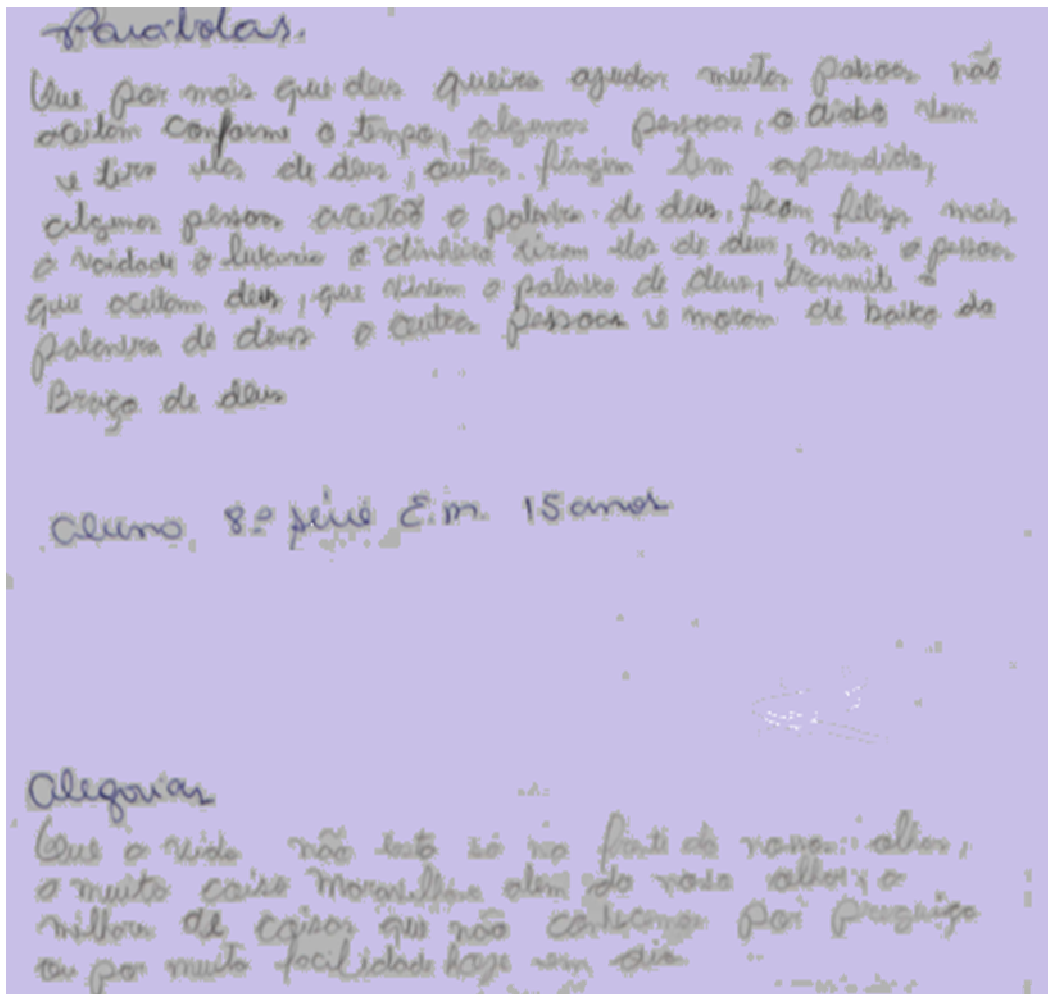 Parábolas.
Que por mais que deus queira ajudar muitas pessoas não
aceitam conforme o tempo, algumas pessoas, o diabo vem
e tira elas de deus, outras fingim tem aprendido,
algumas pessoas aceitão a palavra de deus, ficam felizes mais
a vaidade a luxuria o dinheiro tiram elas de deus, mais a pessoas
que aceitam deus, que vivem a palavra de deus, tranmite a
palavra de deus a outras pessoas e moram de baixo do
Braço de deus
Aluno 8º série E.M. 15 anos
Alegorias
Que a vida não está só na frente do nossos olhos,
a muita coisa Maravilhosa alem do nosso olhar, a
milhares de coisas que não conhecemos por preguiça
ou por muita facilidade hoje em dia